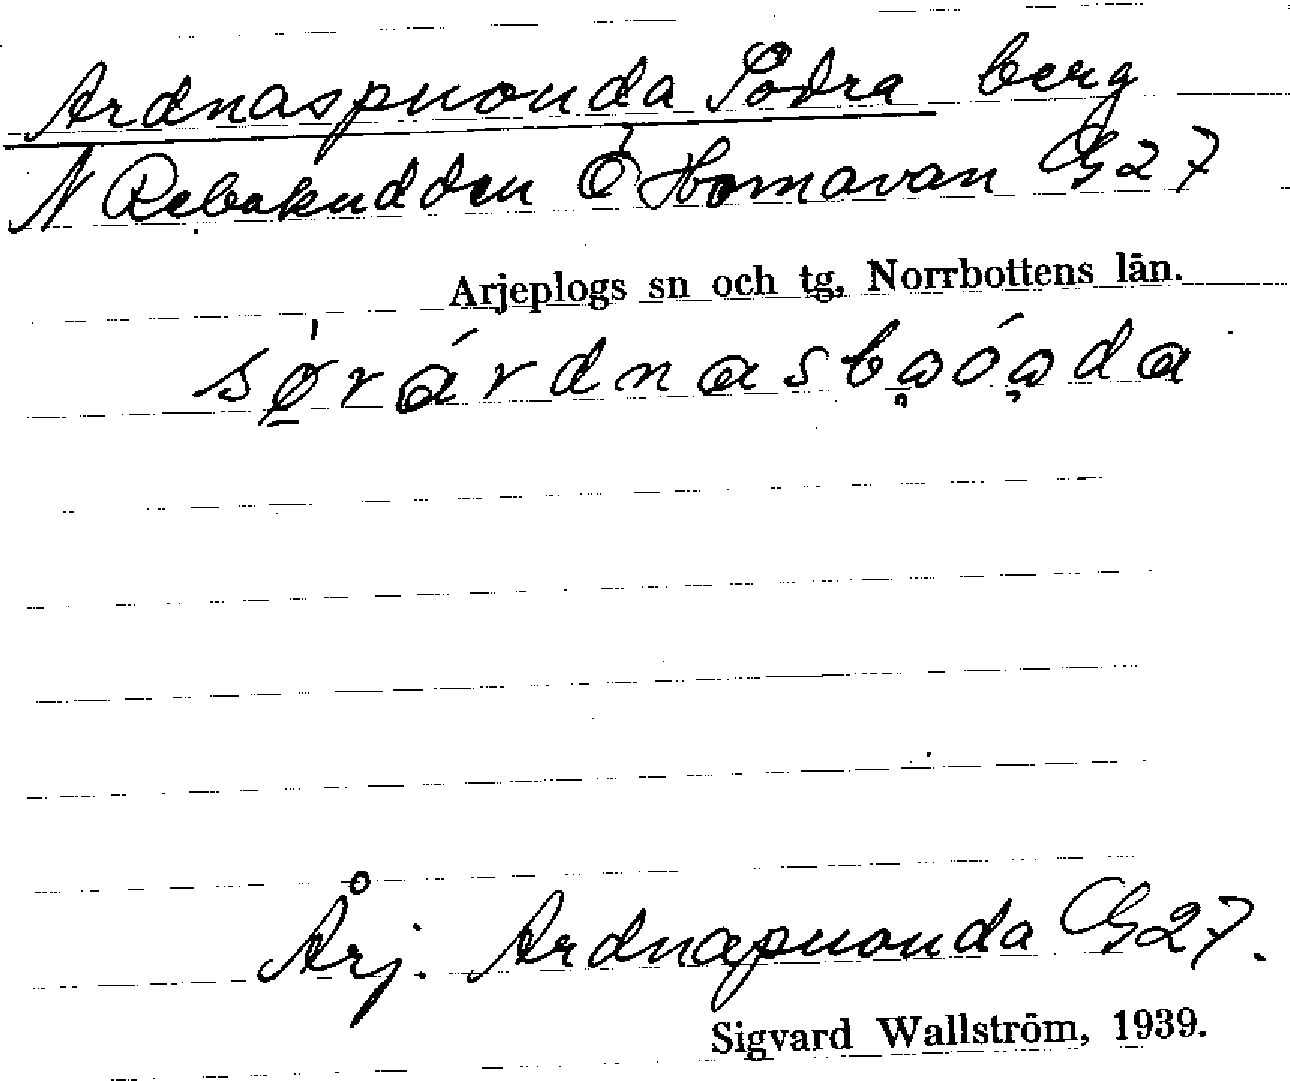 Ardnaspuonda Södra berg
N Rebakudden Ö Hornavan G27
Arjeplogs sn och tg, Norrbottens län.
Årj. Ardnapuonda G27.
Sigvard Wallström, 1939.